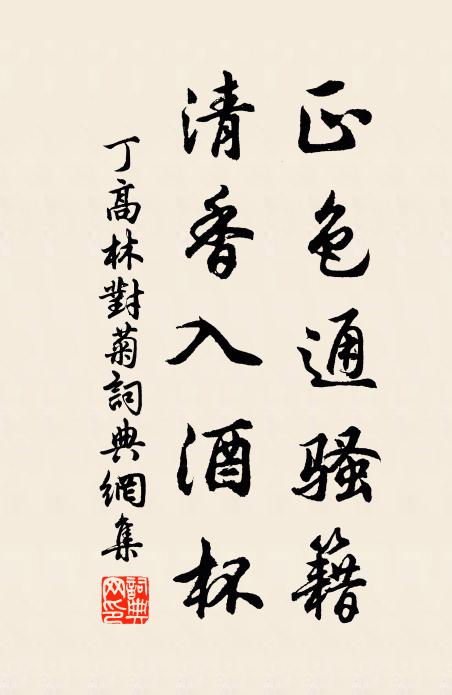 正色通騷籍
清香入酒杯
丁高林對菊詞典網集
詞典網印